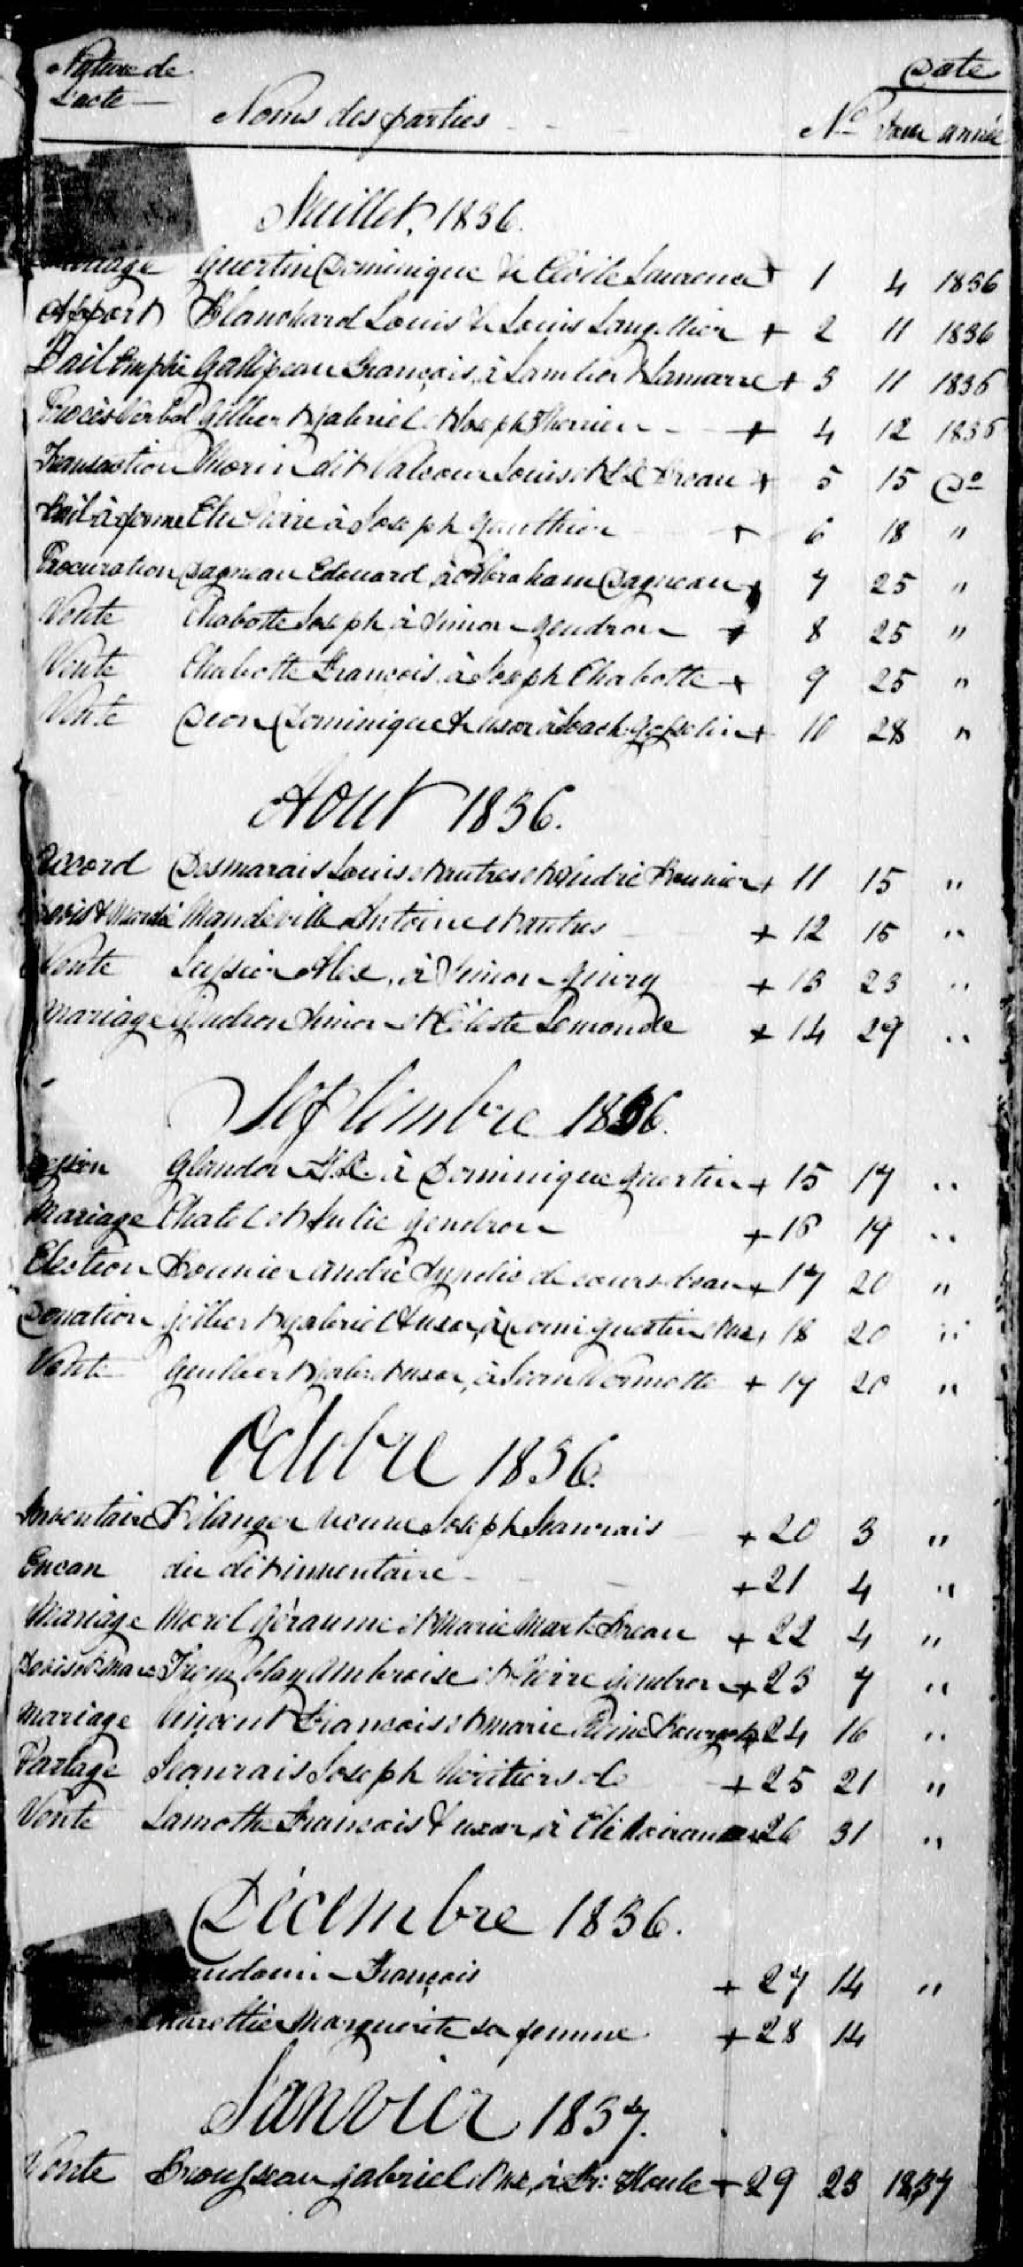 Nature de Date
L'acte Noms des parties No Jour année
Juillet, 1836.
Mariage Guertin Dominique & Cécile Laurence + 1 4 1836
Apport Blanchard Louis & Louis + 2 11 1836
Bail Emphi Gallipeau François, à Lambert Lamarre + 3 11 1836
Procès Verbal Gilbert Gabriel & Joseph Therrien + 4 12 1836
Transaction Morin dit Valcour Louis et + 5 15 Do
Bail à ferme Ethier Pierre à Joseph Gauthier + 6 18 "
Procuration Dagneau Edouard, à Abraham Dagneau + 7 25 "
Vente Chabotte Joseph à Simon Gendron + 8 25 "
Vente Chabotte François, à Joseph Chabotte + 9 25 "
Vente Dion Dominique & uxor à Gosselin + 10 28 "
Aout 1836.
Accord Desmarais Louis et autres et André Bounier + 11 15 "
Mandeville Antoine et autres + 12 15 "
Vente Lussier Alex. à Simon + 13 23 "
Mariage Gendron Simon et Céleste Lemonde + 14 29 "
Septembre 1836.
Cession Glandon à Dominique Guertin + 15 17 "
Mariage Chatel et Julie Gendron + 16 19 "
Election Bounier André Syndic de cours d'eau + 17 20 "
Donation Gilbert Gabriel & uxor, à Domi Guertin et ux + 18 20 "
Vente Guilbert Gabr. et uxor, à + 19 20 "
Octobre 1836.
Inventaire Bélanger veuve Joseph Jeanrais + 20 3 "
Encan du dit inventaire + 21 4 "
Mariage Morel Géraume et Marie + 22 4 "
Devis et Marc Tremblay Ambroise et Pierre Gendron + 23 7 "
Mariage Vincent François et Marie + 24 16 "
Partage Jeanrais Joseph héritiers de + 25 21 "
Vente Lamothe François & uxor, à + 26 31 "
Décembre 1836.
François + 27 14 "
Marguerite sa femme + 28 14
Janvier 1837.
Vente Brousseau Gabriel et ux, à Fr: Houle + 29 23 1837